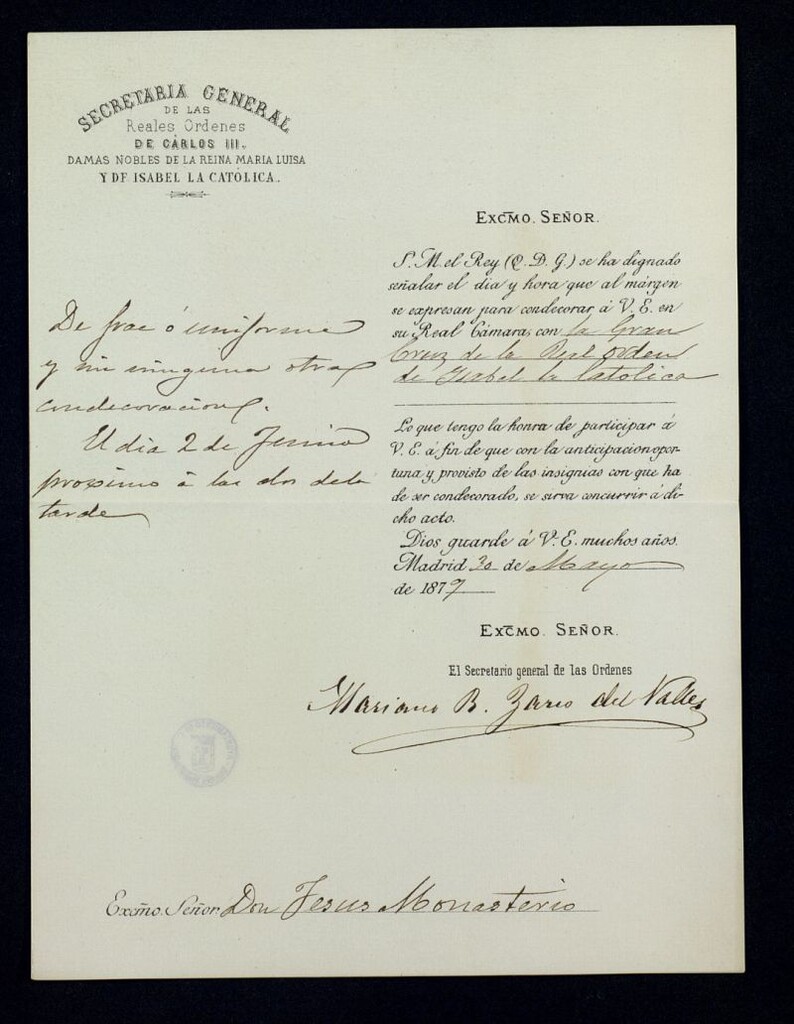 SECRETARIA GENERAL
DE LAS
Reales Ordenes
DE CÁRLOS III.
DAMAS NOBLES DE LA REINA MARIA LUISA
Y DE ISABEL LA CATÓLICA.
De frac ó uniforme
y sin ninguna otra
condecoracion.
El dia 2 de Junio
proximo á las dos de la
tarde
EXCMO. SEÑOR.
S. M. el Rey (Q. D. G.) se ha dignado
señalar el dia y hora que al márgen
se expresan para condecorar á V. E. en
su Real Cámara, con la Gran
Cruz de la Real orden
de Isabel la Catolica
Lo que tengo la honra de participar á
V. E. á fin de que con la anticipacion opor-
tuna y provisto de las insignias con que ha
de ser condecorado, se sirva concurrir á di-
cho acto.
Dios guarde á V. E. muchos años.
Madrid 30 de Mayo
de 1879
EXCMO. SEÑOR.
El Secretario general de las Ordenes
Mariano R. Zarco del Valle
Excmo. Señor Don Jesus Monasterio